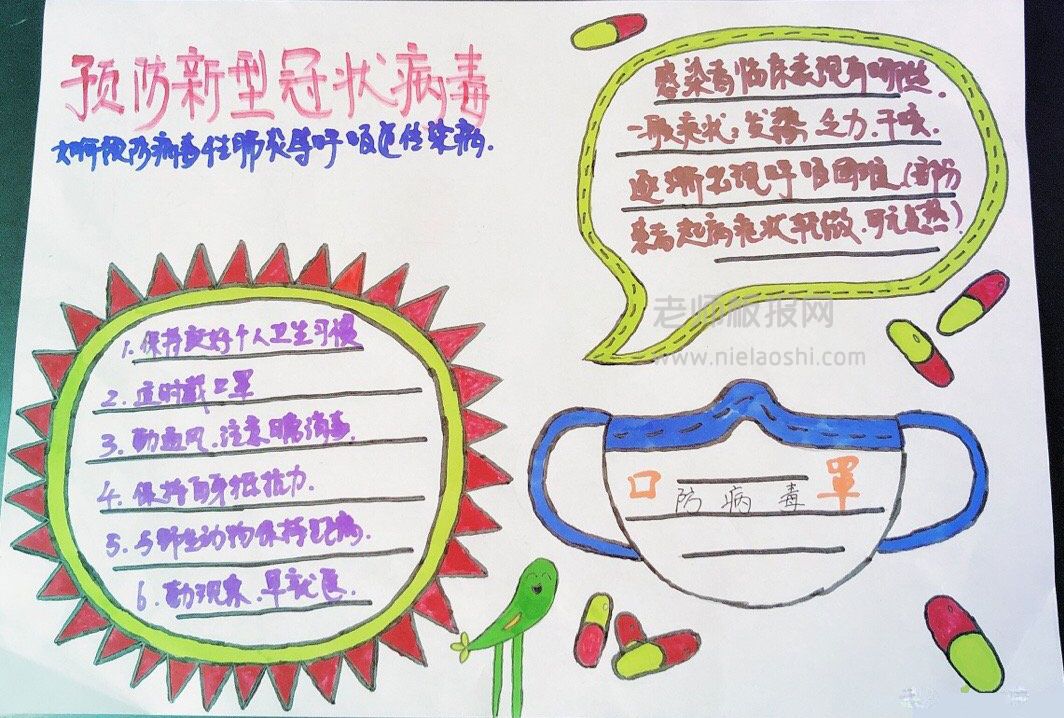 预防新型冠状病毒
如何预防病毒性肺炎等呼吸道传染病.
感染者临床表现有哪些.
一般症状:发热,乏力,干咳.
逐渐出现呼吸困难(部份
患者起病症状轻微.可无发热)
老师板报网
www.nielaoshi.com
1.保持良好个人卫生习惯
2.适时戴口罩
3.勤通风.注意 消毒.
4.保持自身抵抗力.
5.与野生动物保持距离.
6.勤观察.早就医.
口 防病毒 罩